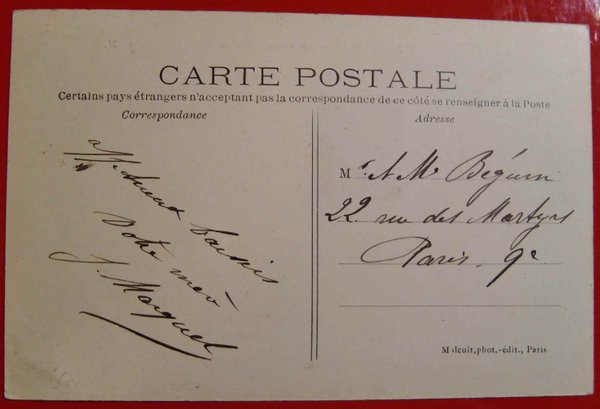 CARTE POSTALE
Certains pays étrangers n'acceptant pas la correspondance de ce côté se renseigner à la Poste
Correspondance
Adresse
Votre
J. Marquet
Mr et Me Béguin
22 rue des Martyrs
Paris. 9e
Malcuit, phot.-édit., Paris